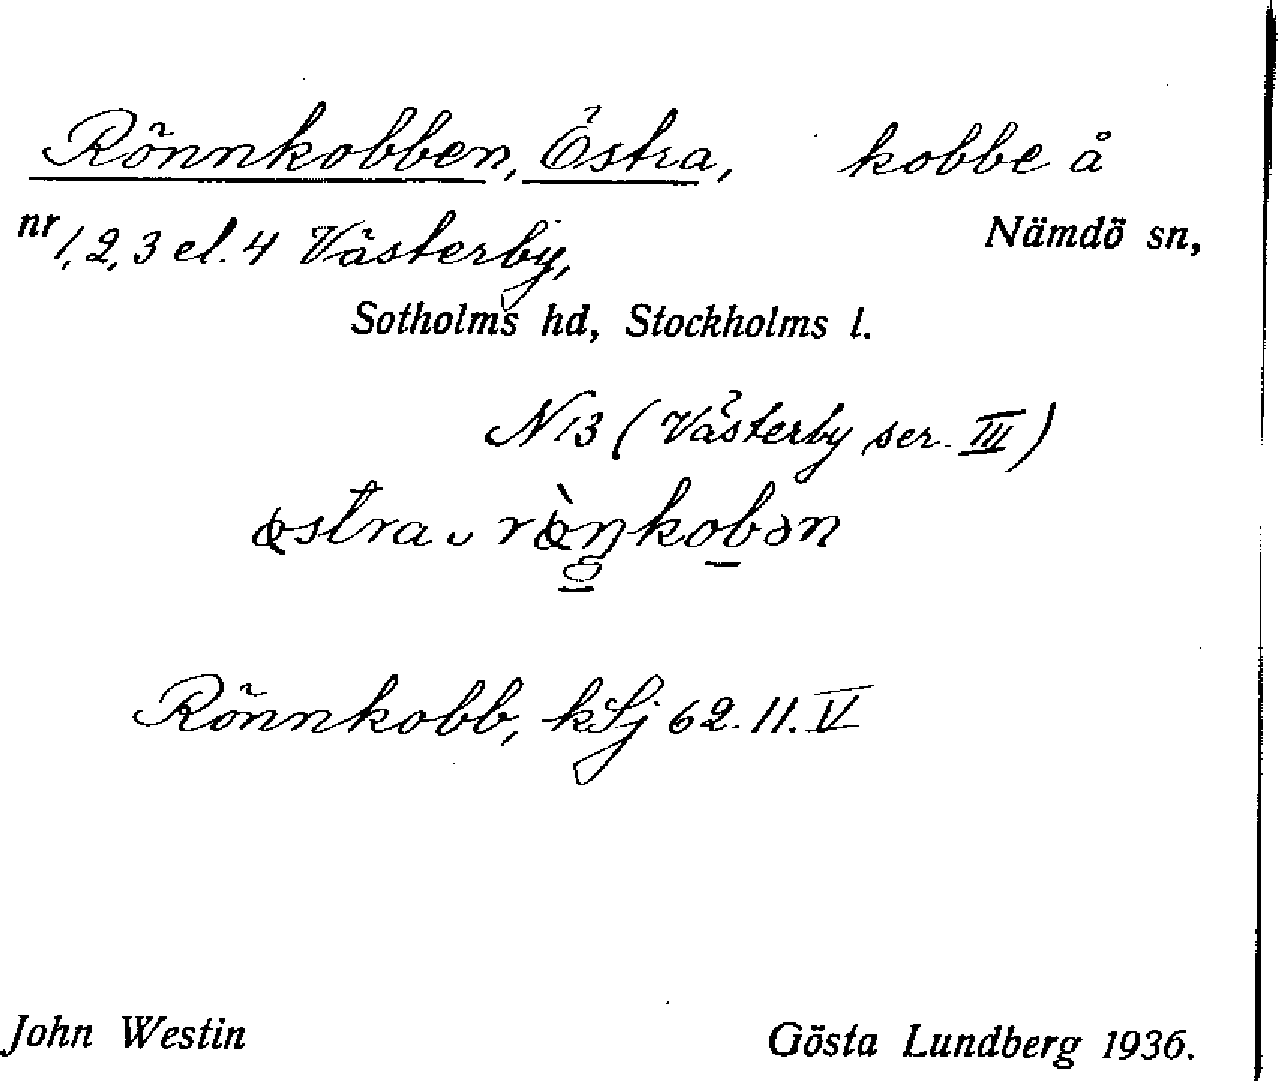 Rönnkobben, Östra, kobbe å
nr 1, 2, 3 el. 4 Västerby, Nämdö sn,
Sotholms hd, Stockholms l.
N 13 (Västerby ser. III)
Rönnkobb, kSj 62.11.V
John Westin Gösta Lundberg 1936.